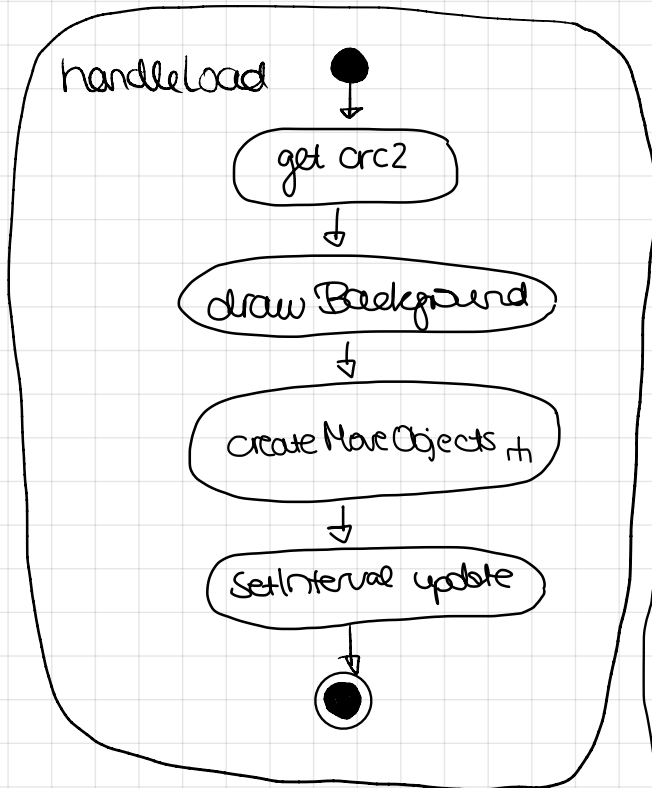 handleLoad
get crc2
draw Background
createMoveObjects
setInterval update